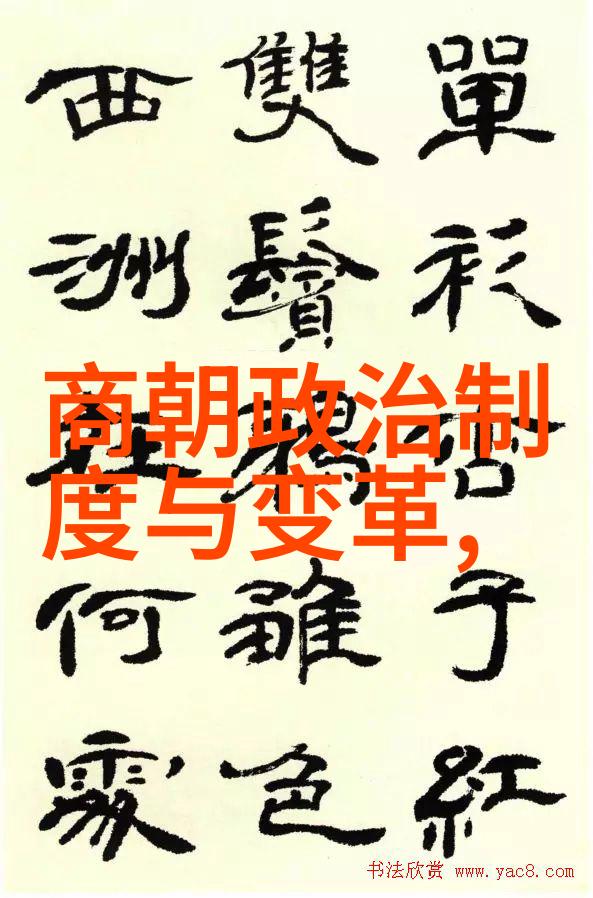 單衫杏子紅
雙鬢鴉雛色
西洲在何處
商朝政治制
度与变革,
书法欣赏 www.yac8.com